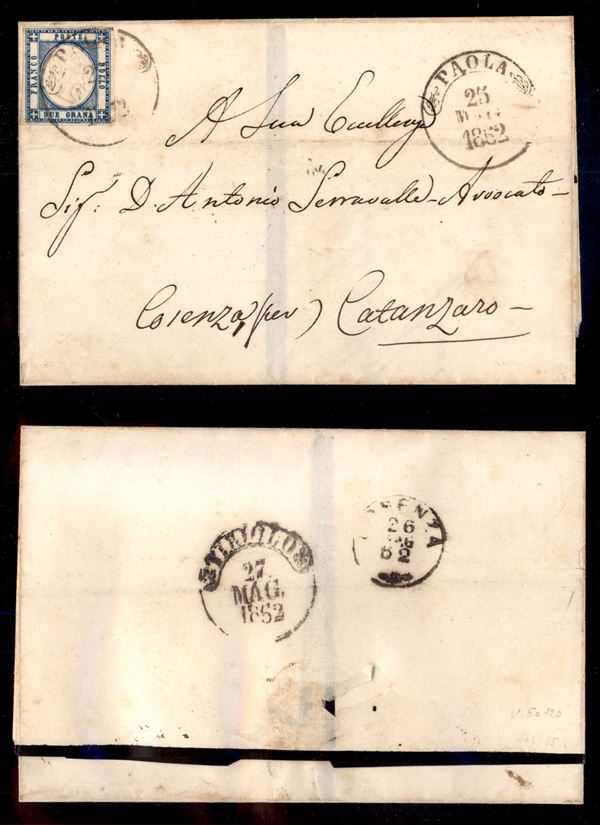 POSTE
FRANCO
BOLLO
DUE GRANA
PAOLA
25
1862
A Sua Eccellenza
Sig.r D. Antonio Serravalle - Avvocato -
Cosenza (per) Catanzaro -
TIRIOLO
27
MAG.
1862
COSENZA
26
MAG
62